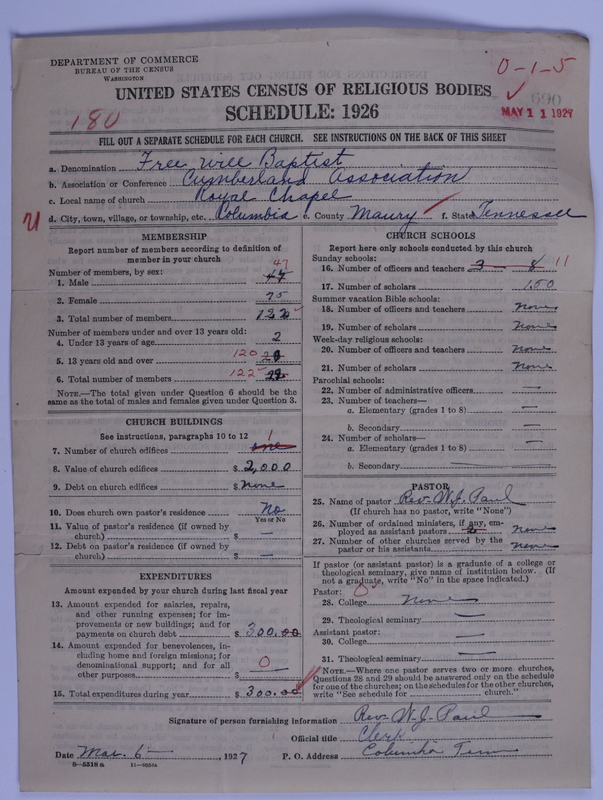 DEPARTMENT OF COMMERCE
BUREAU OF THE CENSUS
WASHINGTON
0-1-5
UNITED STATES CENSUS OF RELIGIOUS BODIES
690
SCHEDULE: 1926
MAY 11 1927
180
FILL OUT A SEPARATE SCHEDULE FOR EACH CHURCH. SEE INSTRUCTIONS ON THE BACK OF THIS SHEET
a. Denomination Free will Baptist
b. Association or Conference Cumberland Association
c. Local name of church Royal Chapel
d. City, town, village, or township, etc. Columbia e. County Maury f. State Tennessee
MEMBERSHIP
Report number of members according to definition of
member in your church
Number of members, by sex: 47
1. Male
2. Female 75
3. Total number of members 122
Number of members under and over 13 years old:
4. Under 13 years of age 2
5. 13 years old and over 120
6. Total number of members 122
NOTE.—The total given under Question 6 should be the
same as the total of males and females given under Question 3.
CHURCH BUILDINGS
See instructions, paragraphs 10 to 12
7. Number of church edifices one 1
8. Value of church edifices $ 2,000
9. Debt on church edifices $ none
10. Does church own pastor's residence No
Yes or No
11. Value of pastor's residence (if owned by
church) $ —
12. Debt on pastor's residence (if owned by
church) $ —
EXPENDITURES
Amount expended by your church during last fiscal year
13. Amount expended for salaries, repairs,
and other running expenses; for im-
provements or new buildings; and for
payments on church debt $ 300.00
14. Amount expended for benevolences, in-
cluding home and foreign missions; for
denominational support; and for all
other purposes $ 0
15. Total expenditures during year $ 300.00
CHURCH SCHOOLS
Report here only schools conducted by this church
Sunday schools:
16. Number of officers and teachers 3 8 11
17. Number of scholars 100
Summer vacation Bible schools:
18. Number of officers and teachers none
19. Number of scholars none
Week-day religious schools:
20. Number of officers and teachers none
21. Number of scholars none
Parochial schools:
22. Number of administrative officers —
23. Number of teachers—
a. Elementary (grades 1 to 8) —
b. Secondary —
24. Number of scholars—
a. Elementary (grades 1 to 8) —
b. Secondary —
PASTOR
25. Name of pastor Rev. W. J. Paul
(If church has no pastor, write "None")
26. Number of ordained ministers, if any, em-
ployed as assistant pastors none
27. Number of other churches served by the
pastor or his assistants none
If pastor (or assistant pastor) is a graduate of a college or
theological seminary, give name of institution below. (If
not a graduate, write "No" in the space indicated.)
Pastor: 0
28. College none
29. Theological seminary —
Assistant pastor:
30. College —
31. Theological seminary —
NOTE.—Where one pastor serves two or more churches,
Questions 28 and 29 should be answered only on the schedule
for one of the churches; on the schedules for the other churches,
write "See schedule for church."
Signature of person furnishing information Rev. W. J. Paul
Official title Clerk
Date Mar. 6 , 1927 P. O. Address Columbia Tenn
8-5518a